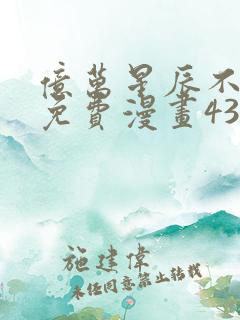 億萬星辰不
免費漫畫43
施建偉
未經同意禁止轉載